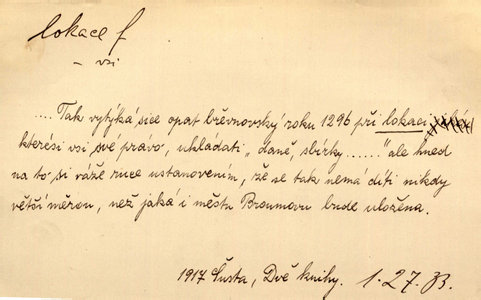 lokace f
– vsi
.... Tak vytýká sice opat břevnovský roku 1296 při lokaci
kterési vsi své právo, ukládati „daně, sbírky......" ale hned
na to si váže ruce ustanovením, že se tak nemá díti nikdy
větší měrou, než jaká i městu Broumovu bude uložena.
1917 Šusta, Dvě knihy. 1.27. B.